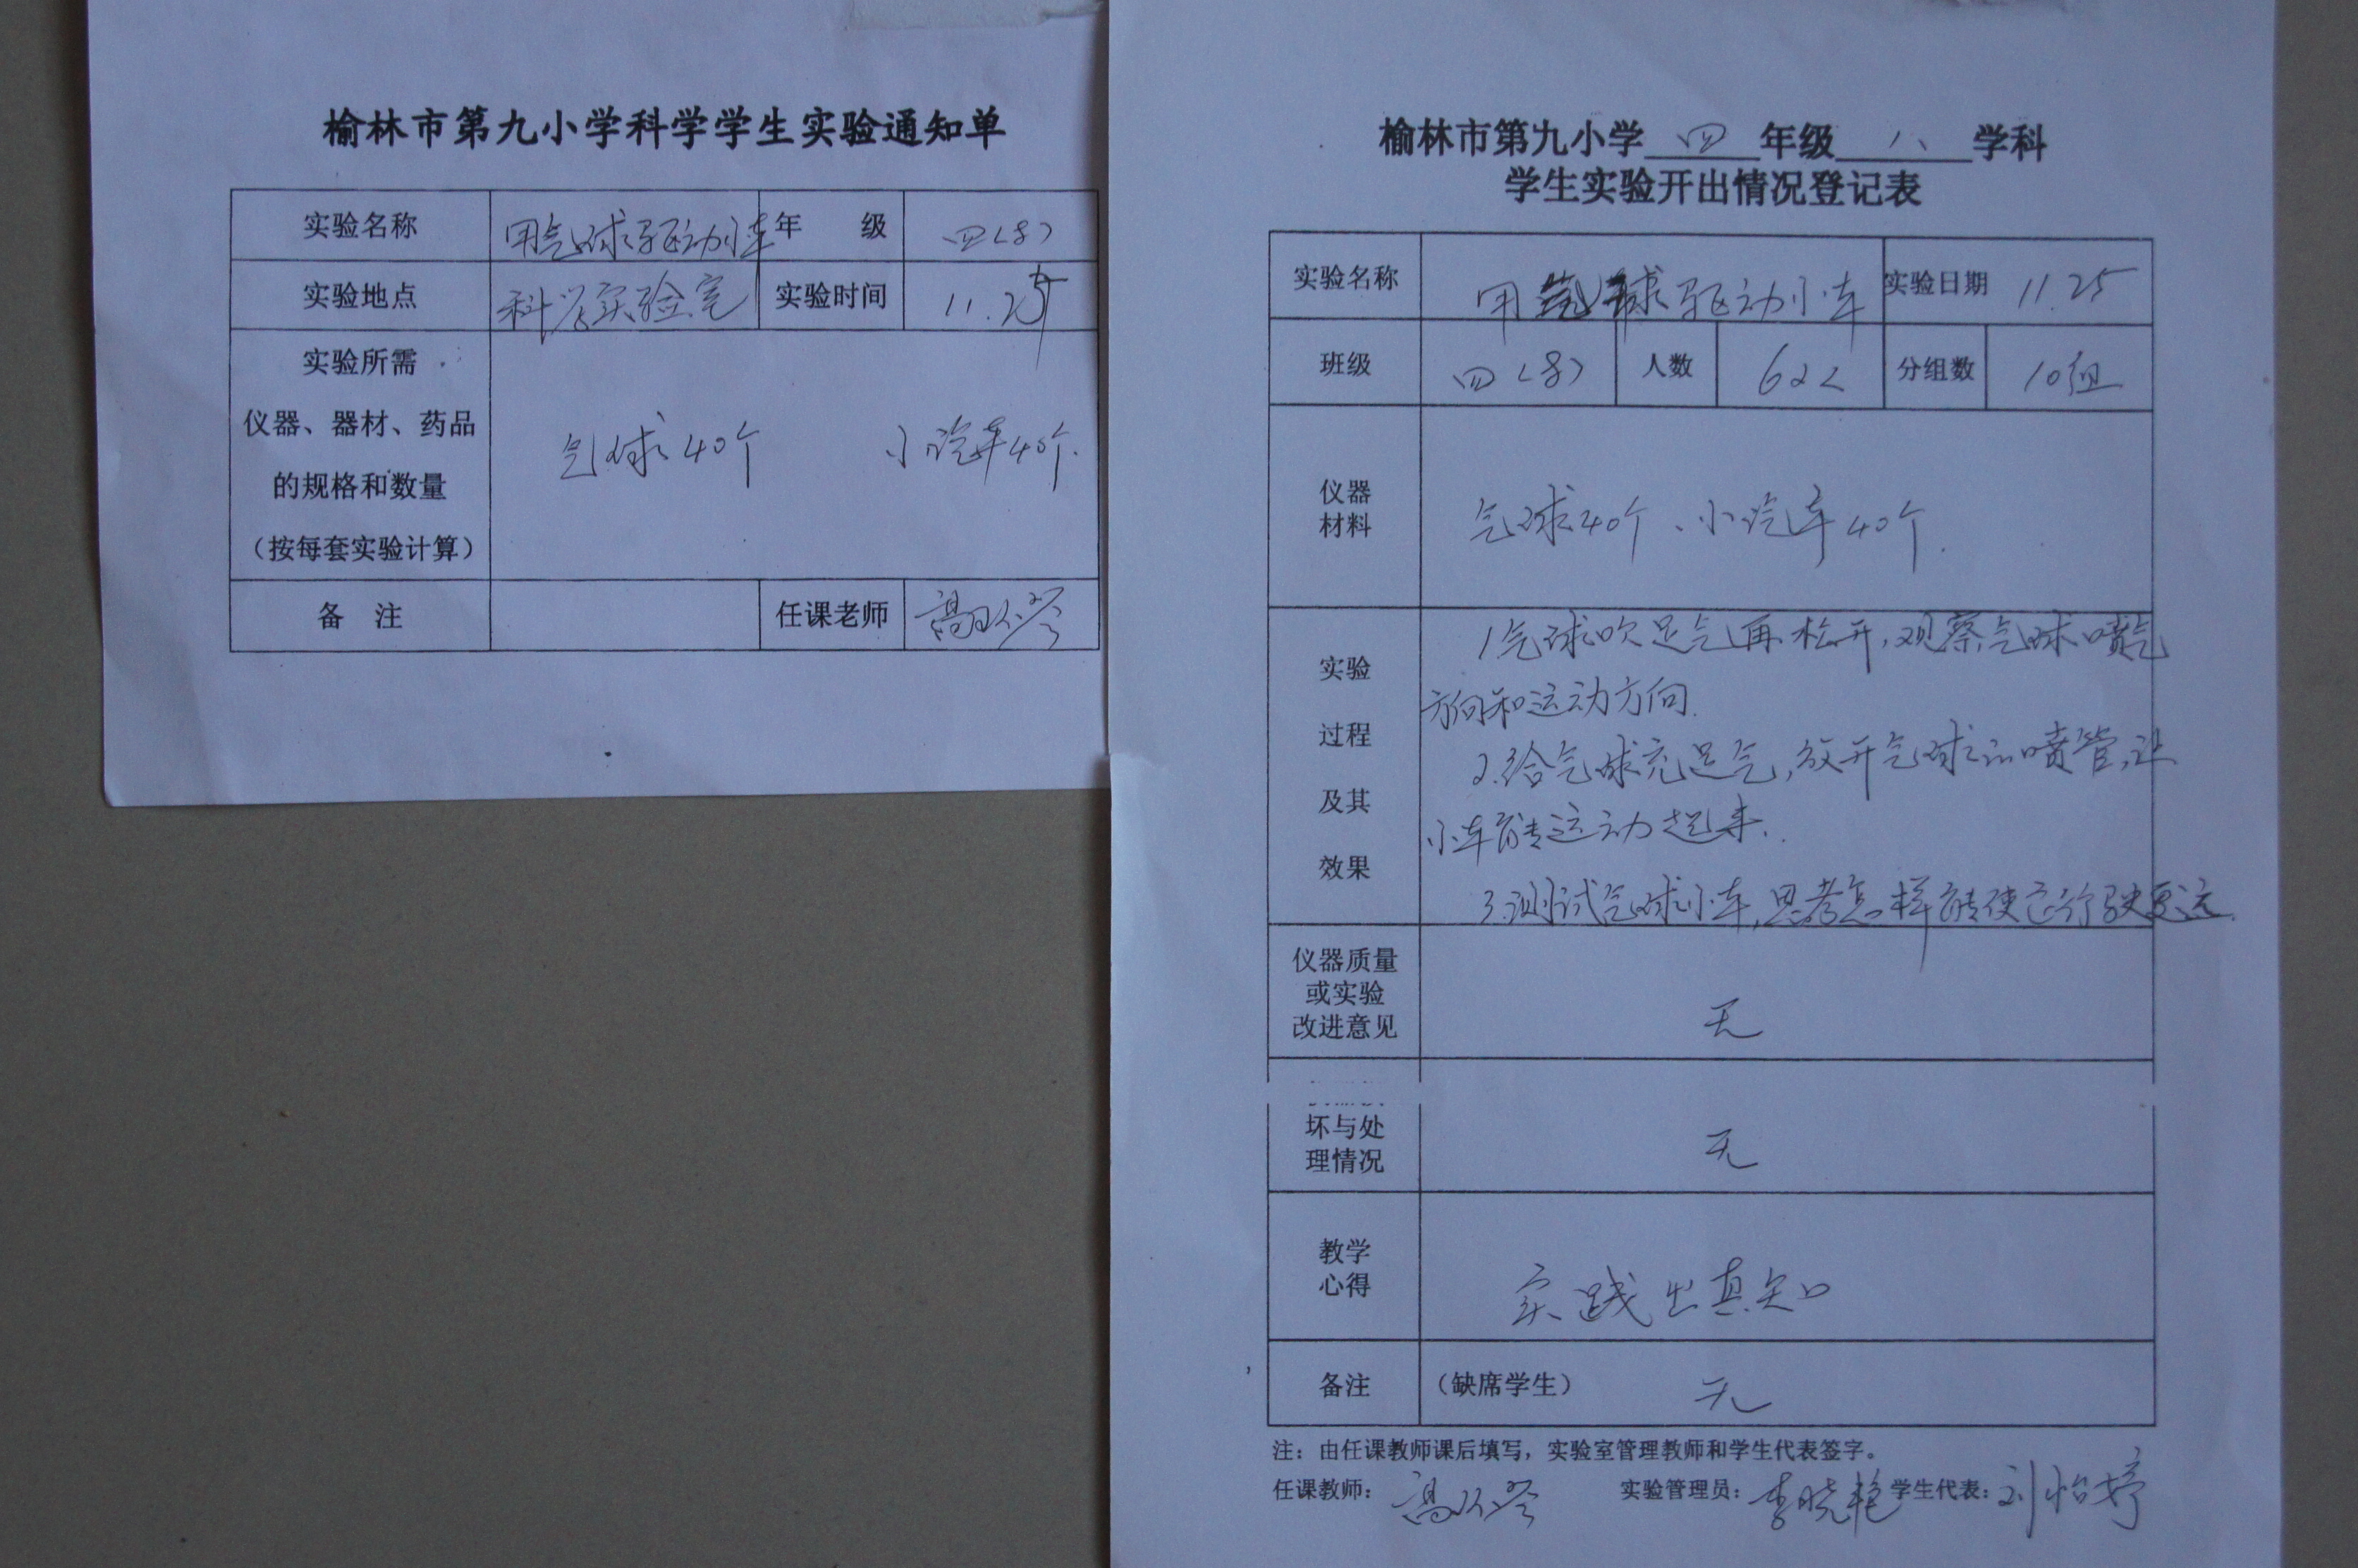 榆林市第九小学科学学生实验通知单
实验名称 用气球驱动小车 年 级 四(8)
实验地点 科学实验室 实验时间 11.25
实验所需
仪器、器材、药品
的规格和数量
(按每套实验计算)
气球40个 小汽车40个.
备 注 任课老师 高
榆林市第九小学 四 年级 八 学科
学生实验开出情况登记表
实验名称 用气球驱动小车 实验日期 11.25
班级 四(8) 人数 62人 分组数 10组
仪器
材料
气球40个、小汽车40个.
实验
过程
及其
效果
1气球吹足气再松开,观察气球喷气
方向和运动方向.
2.给气球充足气,放开气球的喷管,让
小车能运动起来.
3.测试气球小车,思考怎样能使它行驶更远.
仪器质量
或实验
改进意见
无
坏与处
理情况
无
教学
心得
实践出真知
备注 (缺席学生) 无
注:由任课教师课后填写,实验室管理教师和学生代表签字。
任课教师: 高 实验管理员: 李晓艳 学生代表: 刘怡婷